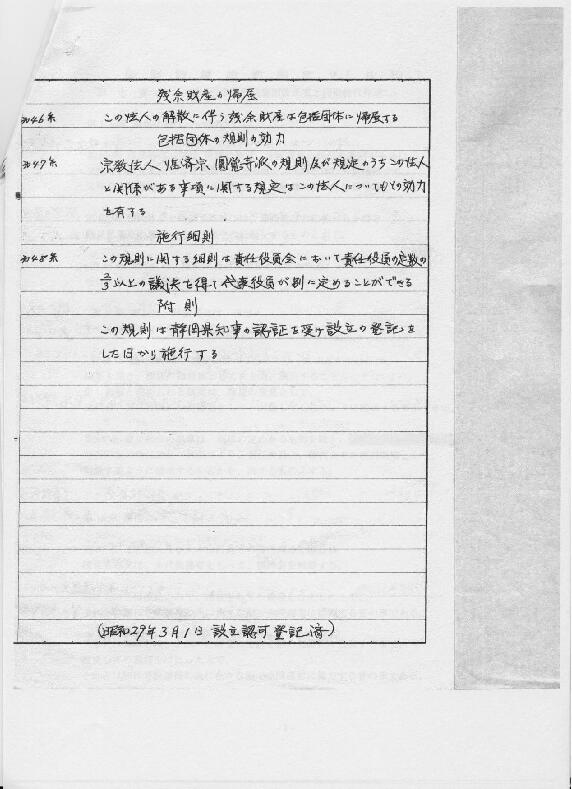 残余財産の帰属
第46条 この法人の解散に伴う残余財産は包括団体に帰属する
包括団体の規則の効力
第47条 宗教法人臨済宗圓覺寺派の規則及が規定のうちこの法人
と関係がある事項に関する規定はこの法人についてもその効力
を有する
施行細則
第48条 この規則に関する細則は責任役員会において責任役員の定数の
2/3以上の議決を得て代表役員が別に定めることができる
附則
この規則は静岡県知事の認証を受け設立の登記を
した日から施行する
(昭和29年3月1日 設立認可登記済)